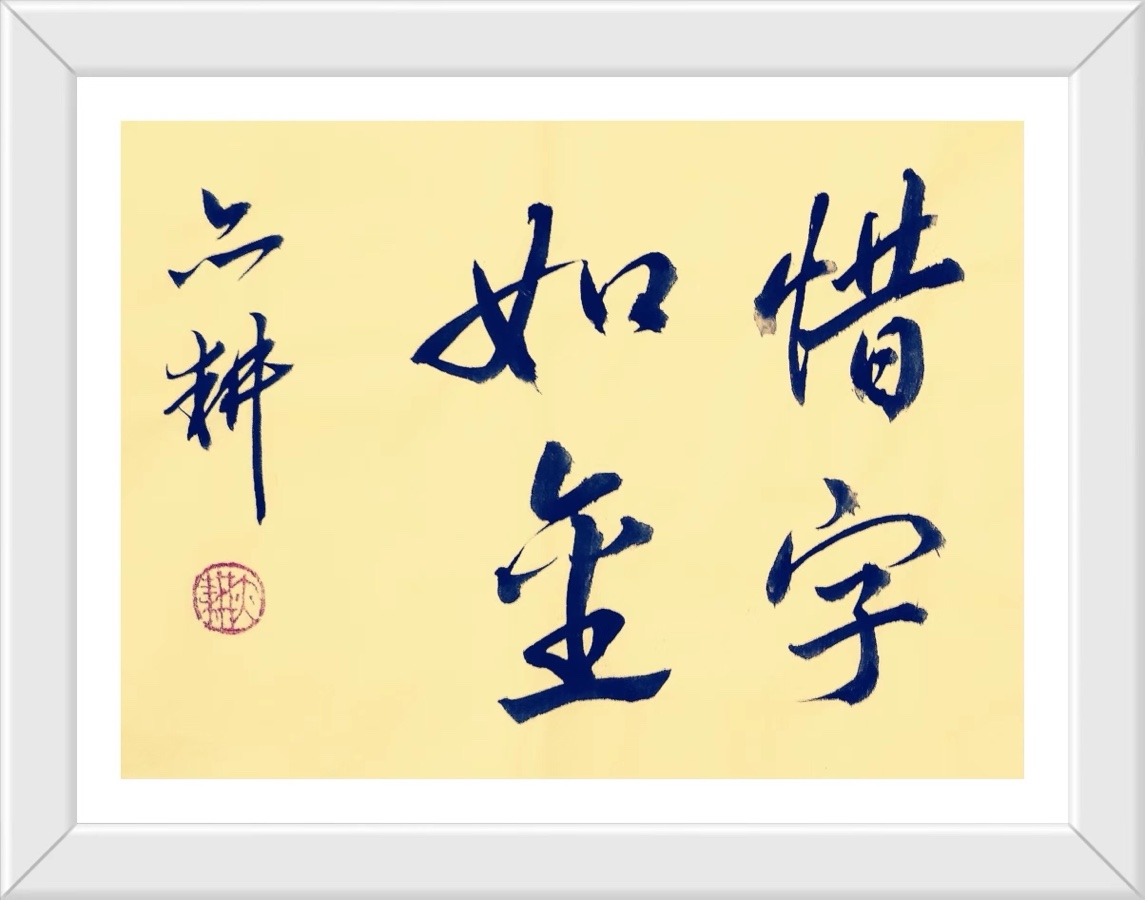 惜字
如金
六耕